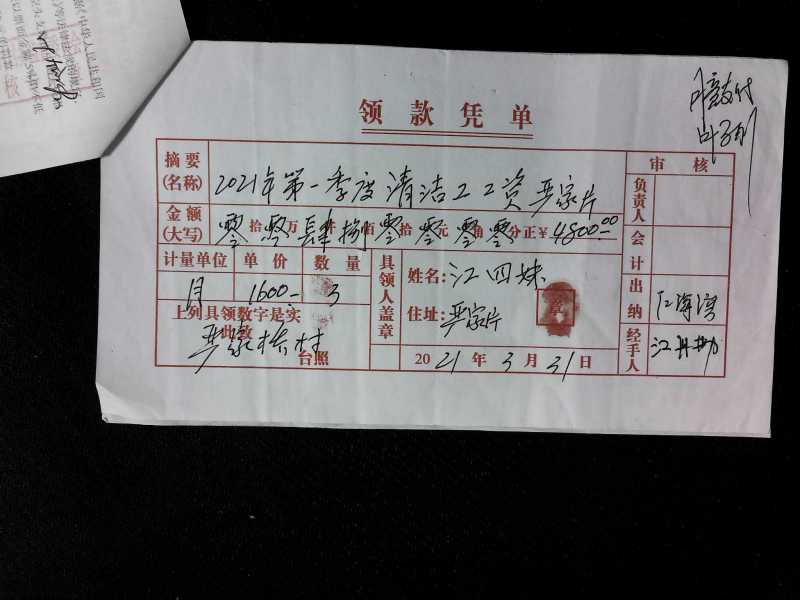 中华人民共和国
领款凭单
支付
审核
摘要
(名称)
2021年第一季度清洁工工资严家片
负责人
金额
(大写)
零拾零万肆仟捌佰零拾零元零角零分正¥4800.00
会计
计量单位 单价 数量
月 1600- 3
上列具领数字是实
此致
严家桥村
台照
具领人盖章
姓名:江四妹
住址:严家片
章
2021年3月31日
出纳
经手人